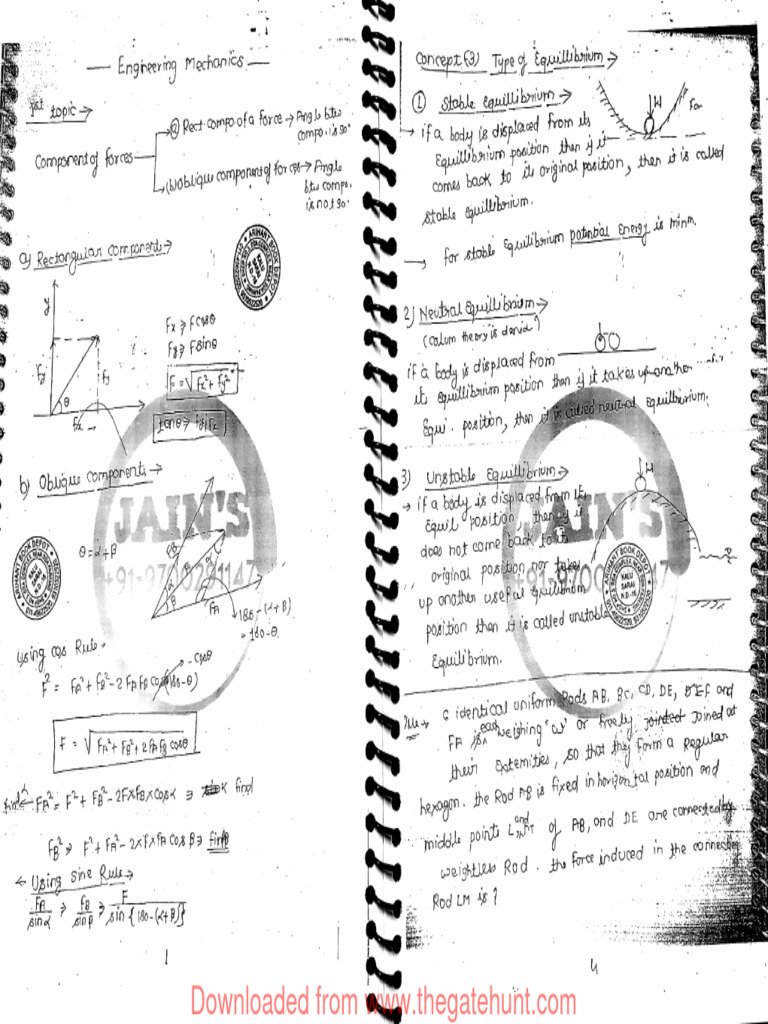 — Engineering Mechanics —
1st topic →
Component of forces
(a) Rect. compo. of a force → Angle btw compo. is 90°
(b) Oblique component of forces → Angle btw compo. is not 90°
a) Rectangular component →
y
Fx ⇒ Fcosθ
Fy ⇒ Fsinθ
F = √Fx² + Fy²
tanθ ⇒ Fy/Fx
Fy
Fy
θ
Fx
b) Oblique component →
θ = α + β
FB
FA
180 - (α + β)
= 180 - θ
Using cos Rule →
- cosθ
F² = FA² + FB² - 2 FA FB cos(180 - θ)
F = √FA² + FB² + 2 FA FB cosθ
FA² = F² + FB² - 2F×FB×cosα ⇒ α find
FB² ⇒ F² + FA² - 2×F×FA cosβ ⇒ find β
← Using sine Rule →
FA/sinα ⇒ FB/sinβ ⇒ F/sin{180 - (α + β)}
1
Concept (3) Type of Equillibrium →
① Stable equillibrium →
W
→ if a body is displaced from its
Equillibrium position then if it
comes back to its original position, then it is called
stable equillibrium.
→ for stable Equilibrium potential Energy is minm.
2) Neutral Equillibrium →
if a body is displaced from
it equillibrium position then if it takes up another
Equi. position, then it is called neutral equillibrium.
3) Unstable Equillibrium →
W
→ if a body is displaced from it
Equil position then if it
does not come back to its
original position nor takes
up another useful equilibrium
position then it is called unstable
Equilibrium.
6 identical uniform Rods AB, BC, CD, DE, EF and
FA each weighing 'w' or freely joined at
their extemities, so that they form a Regular
hexagon. the Rod AB is fixed in horizontal position and
middle points L and M of AB, and DE are connected by
weightless Rod. the force induced in the connecting
Rod LM is?
4
JAIN'S
+91-9700291147
JAIN'S
ARIHANT BOOK DEPOT
KALU SARAI
ARIHANT BOOK DEPOT
ARIHANT BOOK DEPOT
KALU SARAI N.D-16
Downloaded from www.thegatehunt.com